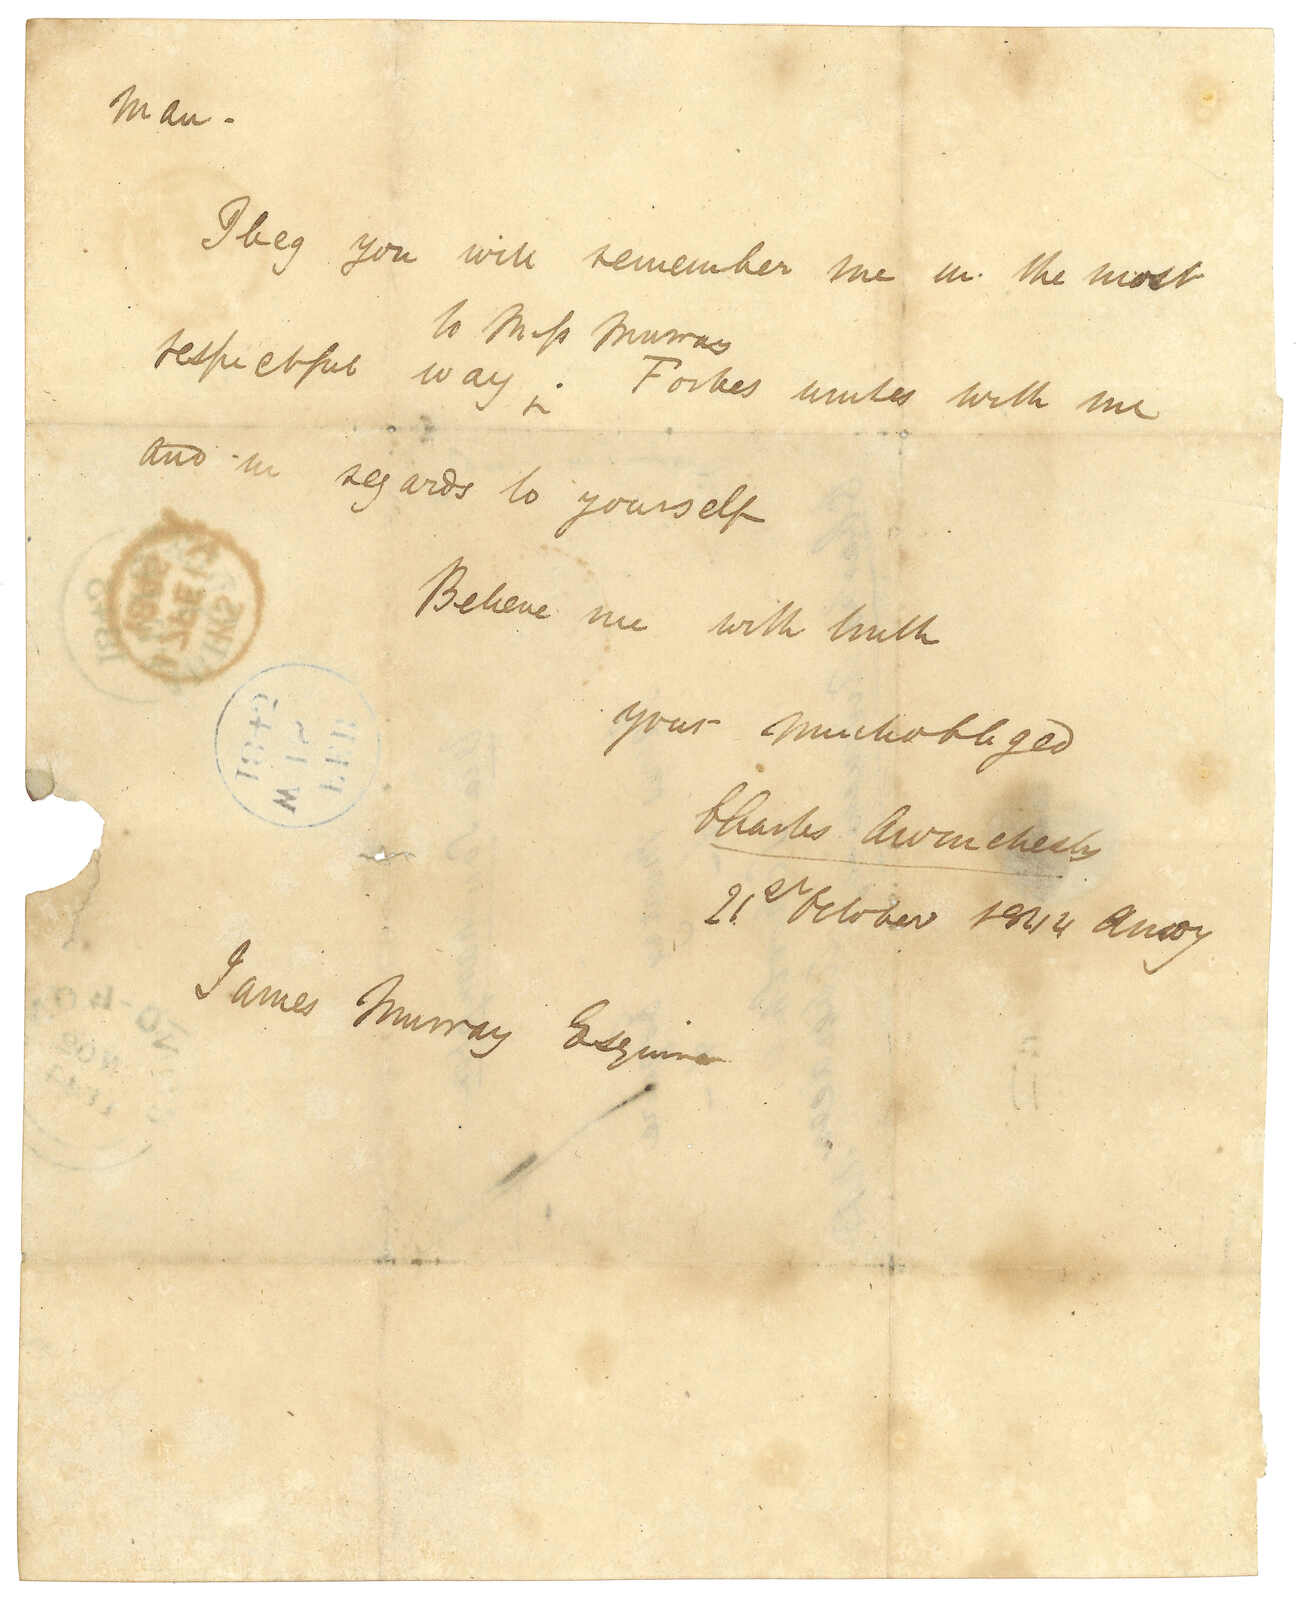 Man -
I beg you will remember me in the most
to Miss Murray
respectful way . Forbes unites with me
and in regards to yourself
Believe me with truth
your much obliged
Charles
21st October 1844 Amoy
James Murray Esquire
1842